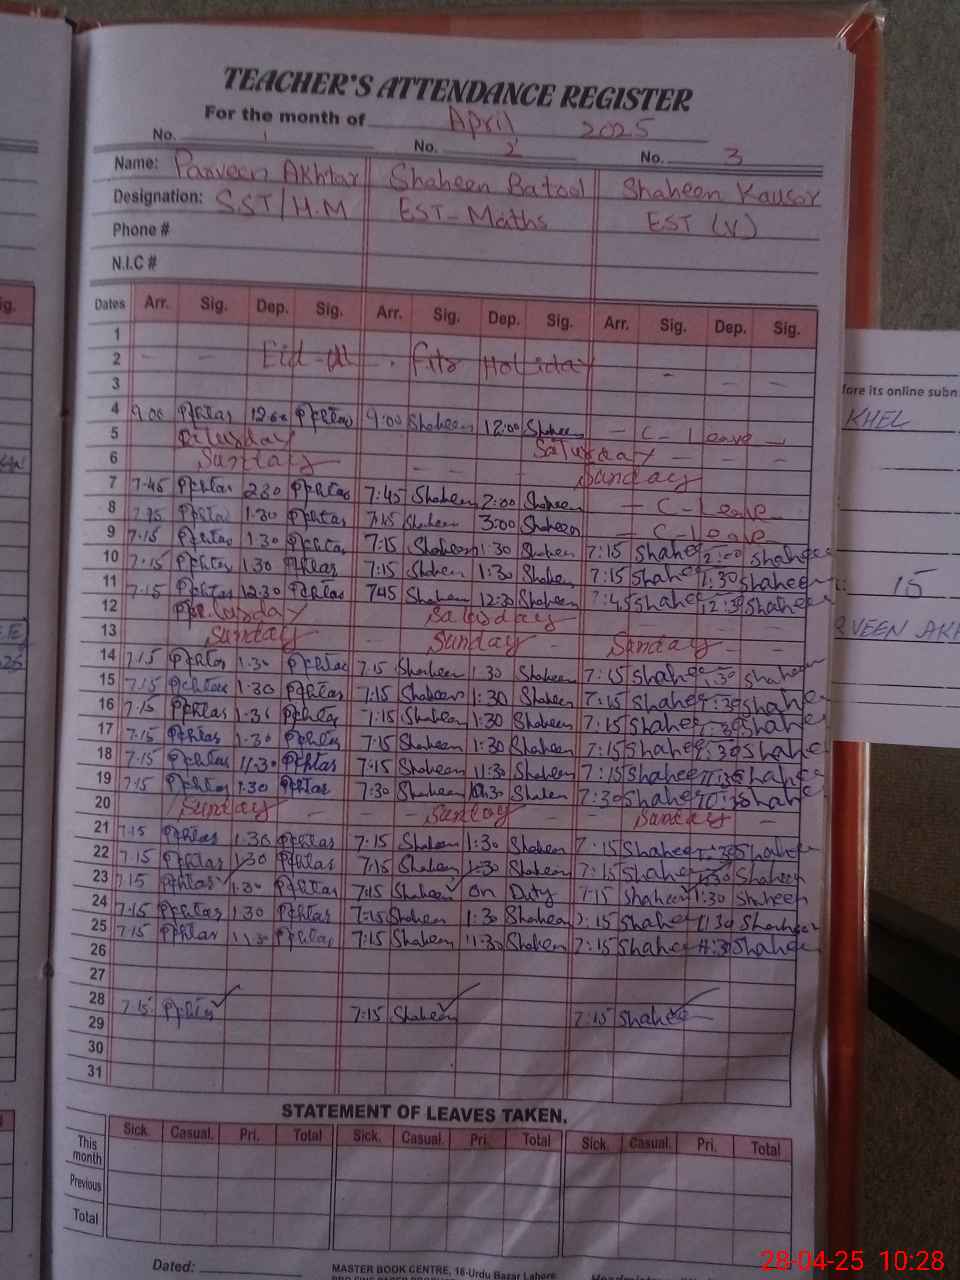 TEACHER'S ATTENDANCE REGISTER
For the month of April 2025
No. 1 No. 2 No. 3
Name: Parveen Akhtar Shaheen Batool Shaheen Kausar
Designation: SST/H.M EST-Maths EST (V)
Phone #
N.I.C #
Dates Arr. Sig. Dep. Sig. Arr. Sig. Dep. Sig. Arr. Sig. Dep. Sig.
1
2 Eid-ul Fitr Holiday
3
4 9:00 12:00 9:00 Shaheen 12:00 Shaheen C-Leave
5 Saturday
6 Sunday Sunday
7 7:45 2:30 7:45 Shaheen 2:00 Shaheen C-Leave
8 1:30 7:15 Shaheen 3:00 Shaheen C-Leave
9 7:15 1:30 7:15 Shaheen 1:30 Shaheen 7:15 Shaheen Shaheen
10 7:15 1:30 7:15 Shaheen 1:30 Shaheen 7:15 Shaheen 1:30 Shaheen
11 7:15 12:30 7:45 Shaheen 12:30 Shaheen 7:45 Shaheen 12:30 Shaheen
12 Saturday
13 Sunday Sunday Sunday
14 7:15 1:30 7:15 Shaheen 1:30 Shaheen 7:15 Shahee 1:30 Shaheen
15 7:15 1:30 7:15 Shaheen 1:30 Shaheen 7:15 Shahee 1:30 Shahee
16 7:15 1:30 7:15 Shaheen 1:30 Shaheen 7:15 Shahee 1:30 Shahee
17 7:15 1:30 7:15 Shaheen 1:30 Shaheen 7:15 Shahee 1:30 Shahee
18 7:15 11:30 7:15 Shaheen 11:30 Shaheen 7:15 Shaheen 11:30 Shahee
19 7:15 7:30 Shaheen 10:30 Shaheen 7:30 Shahee 10:30 Shahee
20 Sunday Sunday Sunday
21 7:15 1:30 7:15 Shaheen 1:30 Shaheen 7:15 Shaheen 1:30 Shahee
22 7:15 1:30 7:15 Shaheen 1:30 Shaheen 7:15 Shahee 1:30 Shaheen
23 7:15 1:30 7:15 Shaheen On Duty 7:15 Shaheen 1:30 Shaheen
24 7:15 1:30 7:15 Shaheen 1:30 Shaheen 7:15 Shahee 1:30 Shaheen
25 7:15 11:30 7:15 Shaheen 11:30 Shaheen 7:15 Shahee 11:30 Shahee
26
27
28 7:15 7:15 Shaheen 7:15 Shahee
29
30
31
STATEMENT OF LEAVES TAKEN.
Sick. Casual. Pri. Total Sick. Casual. Pri. Total Sick. Casual. Pri. Total
This month
Previous
Total
Dated:
MASTER BOOK CENTRE, 16-Urdu Bazar Lahore
ig.
fore its online subn
KHEL
15
RVEEN AKH
28-04-25 10:28